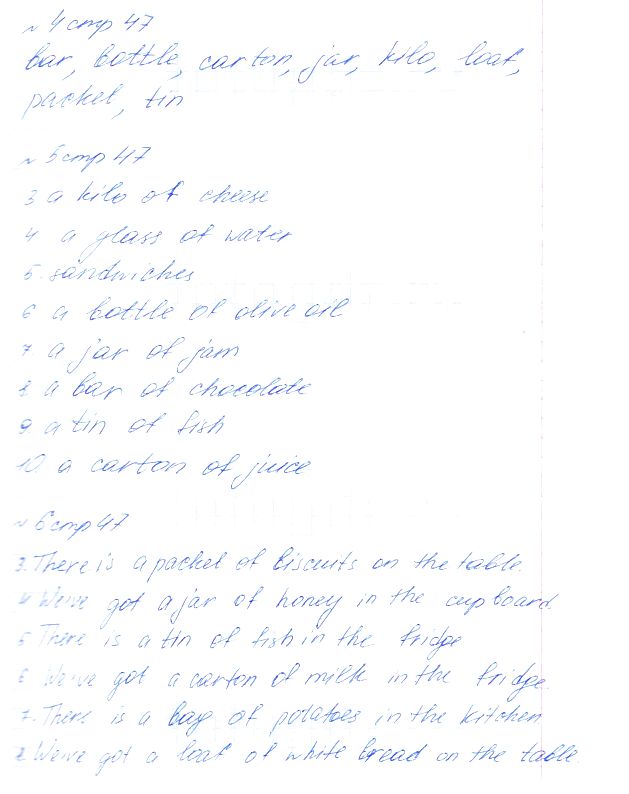 № 4 стр 47
bar, bottle, carton, jar, kilo, loaf,
packet, tin
№ 5 стр 47
3 a kilo of cheese
4 a glass of water
5. sandwiches
6 a bottle of olive oil
7. a jar of jam
8 a bar of chocolate
9 a tin of fish
10 a carton of juice
№ 6 стр 47
3. There is a packet of biscuits on the table.
4 We've got a jar of honey in the cupboard.
5 There is a tin of fish in the fridge
6 We've got a carton of milk in the fridge.
7. There is a bag of potatoes in the kitchen
8 We've got a loaf of white bread on the table.